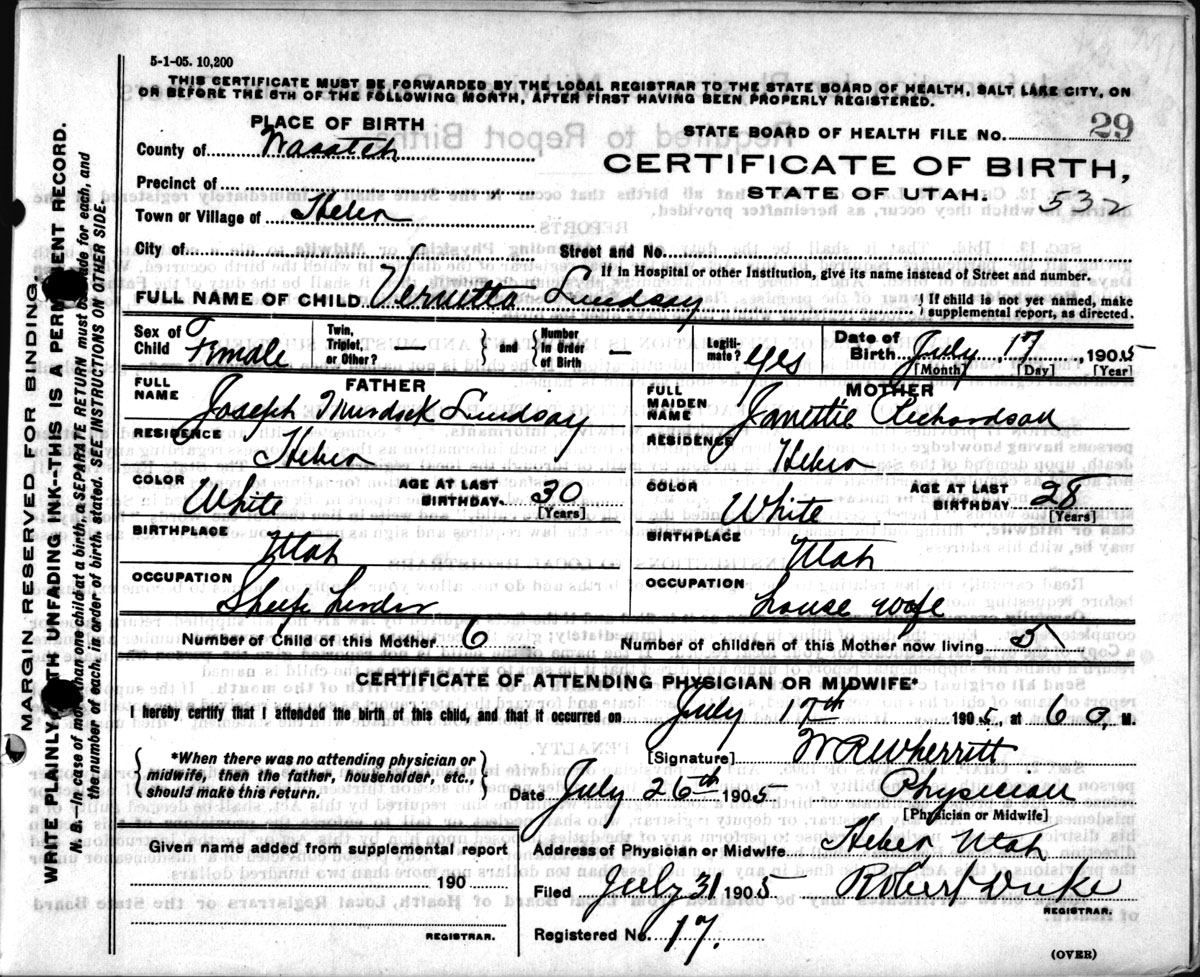 5-1-05. 10,200
THIS CERTIFICATE MUST BE FORWARDED BY THE LOCAL REGISTRAR TO THE STATE BOARD OF HEALTH, SALT LAKE CITY, ON
OR BEFORE THE 5TH OF THE FOLLOWING MONTH, AFTER FIRST HAVING BEEN PROPERLY REGISTERED.
PLACE OF BIRTH
STATE BOARD OF HEALTH FILE NO. 29
County of Wasatch
CERTIFICATE OF BIRTH,
Precinct of
STATE OF UTAH.
532
Town or Village of Heber
City of
Street and No.
If in Hospital or other Institution, give its name instead of Street and number.
FULL NAME OF CHILD. Vernetta Lindsay
} If child is not yet named, make
supplemental report, as directed.
Sex of Child Female
Twin, Triplet, or Other? — } and { Number in Order of Birth —
Legitimate? yes
Date of Birth July 17, 1905
[Month] [Day] [Year]
FATHER
FULL NAME Joseph Murdock Lindsay
RESIDENCE Heber
COLOR White
AGE AT LAST BIRTHDAY 30
[Years]
BIRTHPLACE Utah
OCCUPATION Sheep herder
MOTHER
FULL MAIDEN NAME Janettie Richardson
RESIDENCE Heber
COLOR White
AGE AT LAST BIRTHDAY 28
[Years]
BIRTHPLACE Utah
OCCUPATION house wife
Number of Child of this Mother 6
Number of children of this Mother now living 5
CERTIFICATE OF ATTENDING PHYSICIAN OR MIDWIFE*
I hereby certify that I attended the birth of this child, and that it occurred on July 17th 1905, at 6 M.
*When there was no attending physician or
midwife, then the father, householder, etc.,
should make this return.
[Signature] W R Wherritt
Date July 26th 1905 Physician
[Physician or Midwife]
Given name added from supplemental report
190
REGISTRAR.
Address of Physician or Midwife Heber Utah
Filed July 31 1905 Robert Duke
REGISTRAR.
Registered No. 17.
(OVER)
MARGIN RESERVED FOR BINDING.
WRITE PLAINLY WITH UNFADING INK--THIS IS A PERMANENT RECORD.
N. B.--In case of more than one child at a birth, a SEPARATE RETURN must be made for each, and
the number of each, in order of birth, stated. SEE INSTRUCTIONS ON OTHER SIDE.